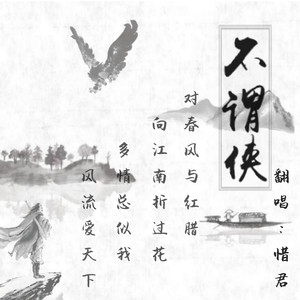 不谓侠
翻唱：惜君
对春风与红腊
向江南折过花
多情总似我
风流爱天下